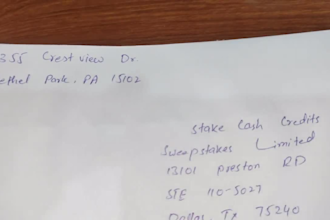 355 Crestview Dr.
ethel Park, PA 15102
Stake Cash Credits
Sweepstakes Limited
13101 preston RD
STE 110-5027
Dallas, Tx 75240